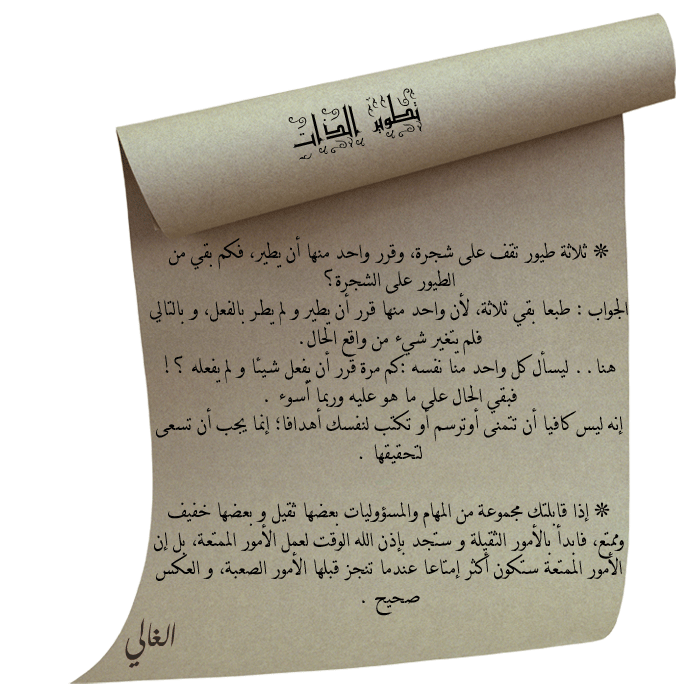 تطوير الذات
* ثلاثة طيور تقف على شجرة، وقرر واحد منها أن يطير، فكم بقي من
الطيور على الشجرة؟
الجواب : طبعا بقي ثلاثة، لأن واحد منها قرر أن يطير و لم يطر بالفعل، و بالتالي
فلم يتغير شيء من واقع الحال.
هنا . . ليسأل كل واحد منا نفسه :كم مرة قرر أن يفعل شيئا و لم يفعله ؟ !
فبقي الحال على ما هو عليه وربما أسوء .
إنه ليس كافيا أن تتمنى أوترسم أو تكتب لنفسك أهدافا؛ إنما يجب أن تسعى
لتحقيقها .
* إذا قابلتك مجموعة من المهام والمسؤوليات بعضها ثقيل و بعضها خفيف
وممتع، فابدأ بالأمور الثقيلة و ستجد بإذن الله الوقت لعمل الأمور الممتعة، بل إن
الأمور الممتعة ستكون أكثر إمتاعا عندما تنجز قبلها الأمور الصعبة، و العكس
صحيح .
الغالي